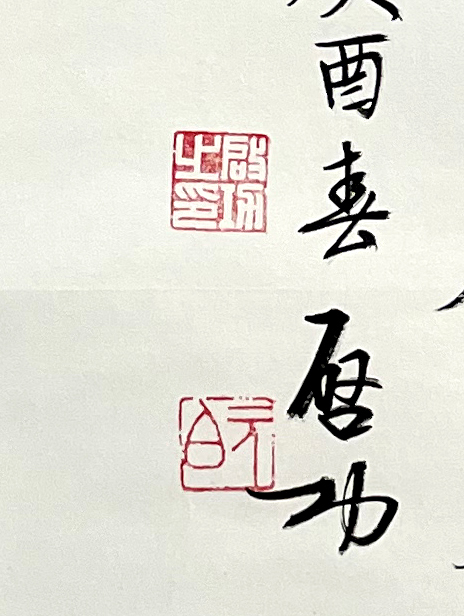 酉春啓功
啓功之印
元白